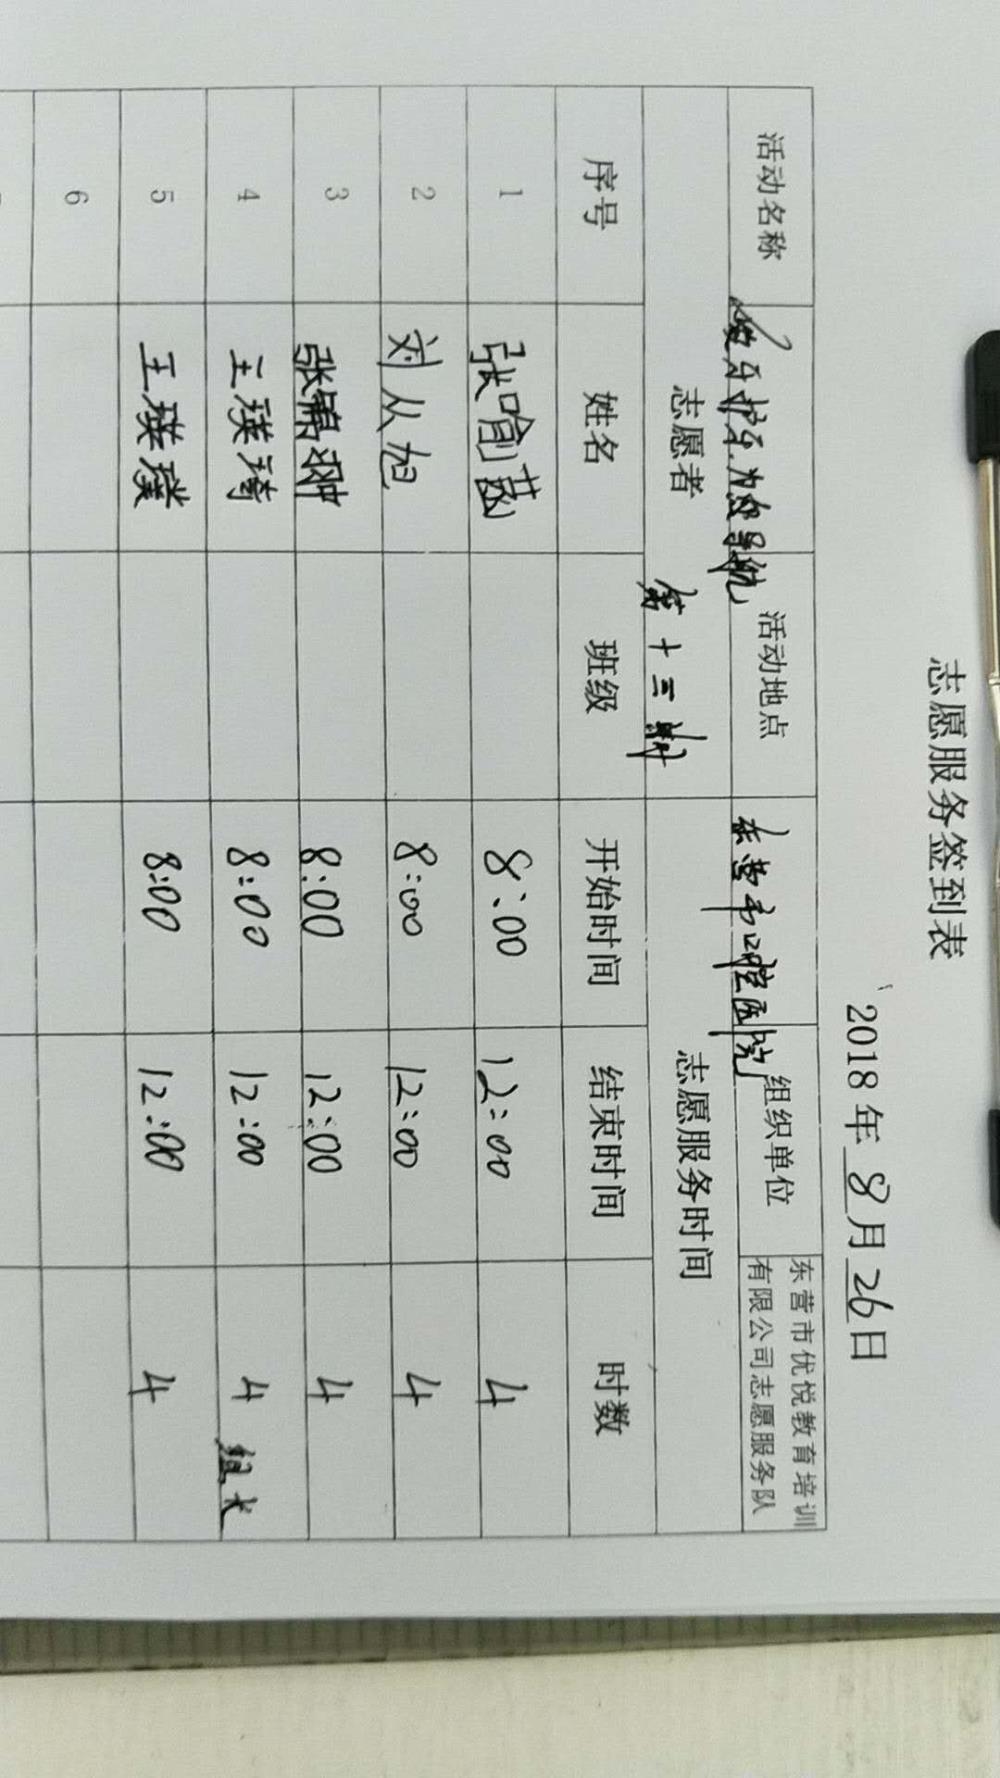 志愿服务签到表
2018年8月26日
活动名称 爱牙护牙.为你导航 活动地点 东营市口腔医院 组织单位 东营市优悦教育培训
有限公司志愿服务队
志愿者 第十三期 志愿服务时间
序号 姓名 班级 开始时间 结束时间 时数
1 张喻菡 8:00 12:00 4
2 刘从旭 8:00 12:00 4
3 张 8:00 12:00 4
4 王瑛琦 8:00 12:00 4 组长
5 王瑛璞 8:00 12:00 4
6